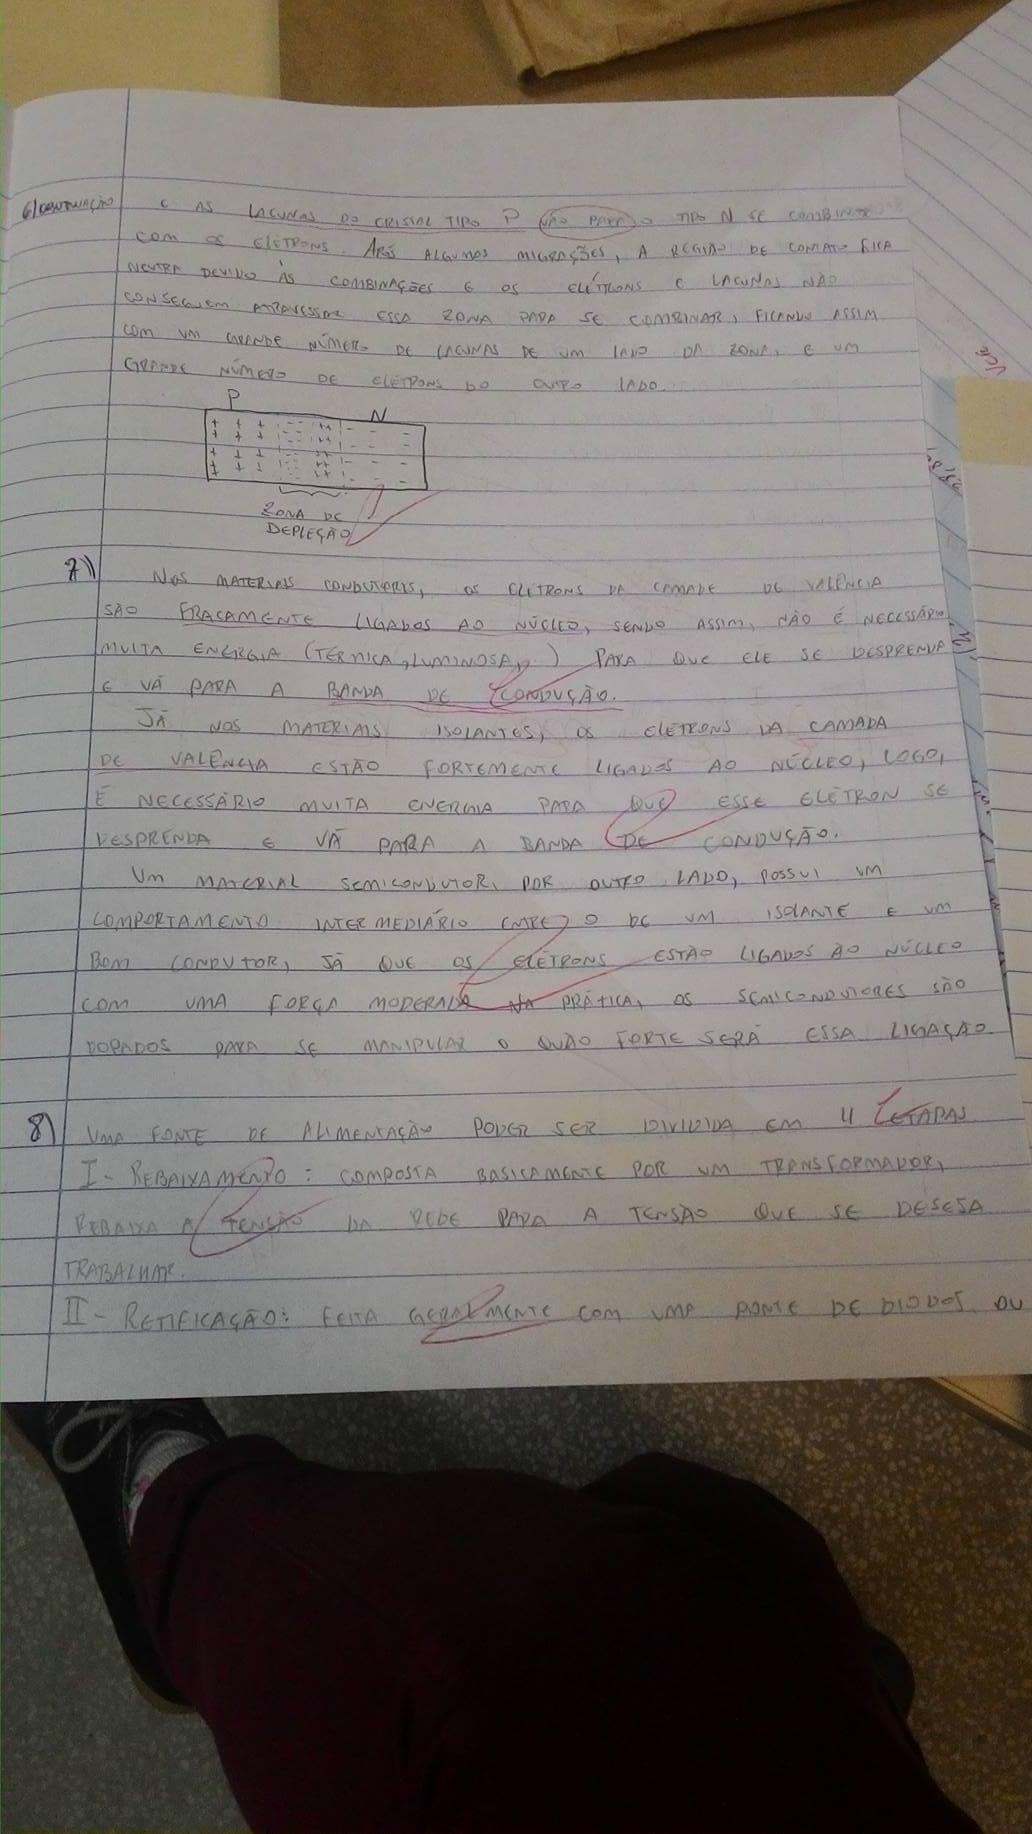 6) CONTINUAÇÃO E AS LACUNAS DO CRISTAL TIPO P VÃO PARA O TIPO N SE COMBINAR
COM OS ELÉTRONS. APÓS ALGUMAS MIGRAÇÕES, A REGIÃO DE CONTATO FICA
NEUTRA DEVIDO ÀS COMBINAÇÕES E OS ELÉTRONS E LACUNAS NÃO
CONSEGUEM ATRAVESSAR ESSA ZONA PARA SE COMBINAR, FICANDO ASSIM
COM UM GRANDE NÚMERO DE LACUNAS DE UM LADO DA ZONA, E UM
GRANDE NÚMERO DE ELÉTRONS DO OUTRO LADO.
P N
ZONA DE
DEPLEÇÃO
7) NOS MATERIAIS CONDUTORES, OS ELÉTRONS DA CAMADA DE VALÊNCIA
SÃO FRACAMENTE LIGADOS AO NÚCLEO, SENDO ASSIM, NÃO É NECESSÁRIO
MUITA ENERGIA (TÉRMICA, LUMINOSA,...) PARA QUE ELE SE DESPRENDA
E VÁ PARA A BANDA DE CONDUÇÃO.
JÁ NOS MATERIAIS ISOLANTES, OS ELÉTRONS DA CAMADA
DE VALÊNCIA ESTÃO FORTEMENTE LIGADOS AO NÚCLEO, LOGO,
É NECESSÁRIO MUITA ENERGIA PARA QUE ESSE ELÉTRON SE
DESPRENDA E VÁ PARA A BANDA DE CONDUÇÃO.
UM MATERIAL SEMICONDUTOR, POR OUTRO LADO, POSSUI UM
COMPORTAMENTO INTERMEDIÁRIO ENTRE O DE UM ISOLANTE E UM
BOM CONDUTOR, JÁ QUE OS ELÉTRONS ESTÃO LIGADOS AO NÚCLEO
COM UMA FORÇA MODERADA. NA PRÁTICA, OS SEMICONDUTORES SÃO
DOPADOS PARA SE MANIPULAR O QUÃO FORTE SERÁ ESSA LIGAÇÃO
8) UMA FONTE DE ALIMENTAÇÃO PODER SER DIVIDIDA EM 4 ETAPAS
I - REBAIXAMENTO: COMPOSTA BASICAMENTE POR UM TRANSFORMADOR,
REBAIXA A TENSÃO DA REDE PARA A TENSÃO QUE SE DESEJA
TRABALHAR.
II - RETIFICAÇÃO: FEITA GERALMENTE COM UMA PONTE DE DIODOS, OU